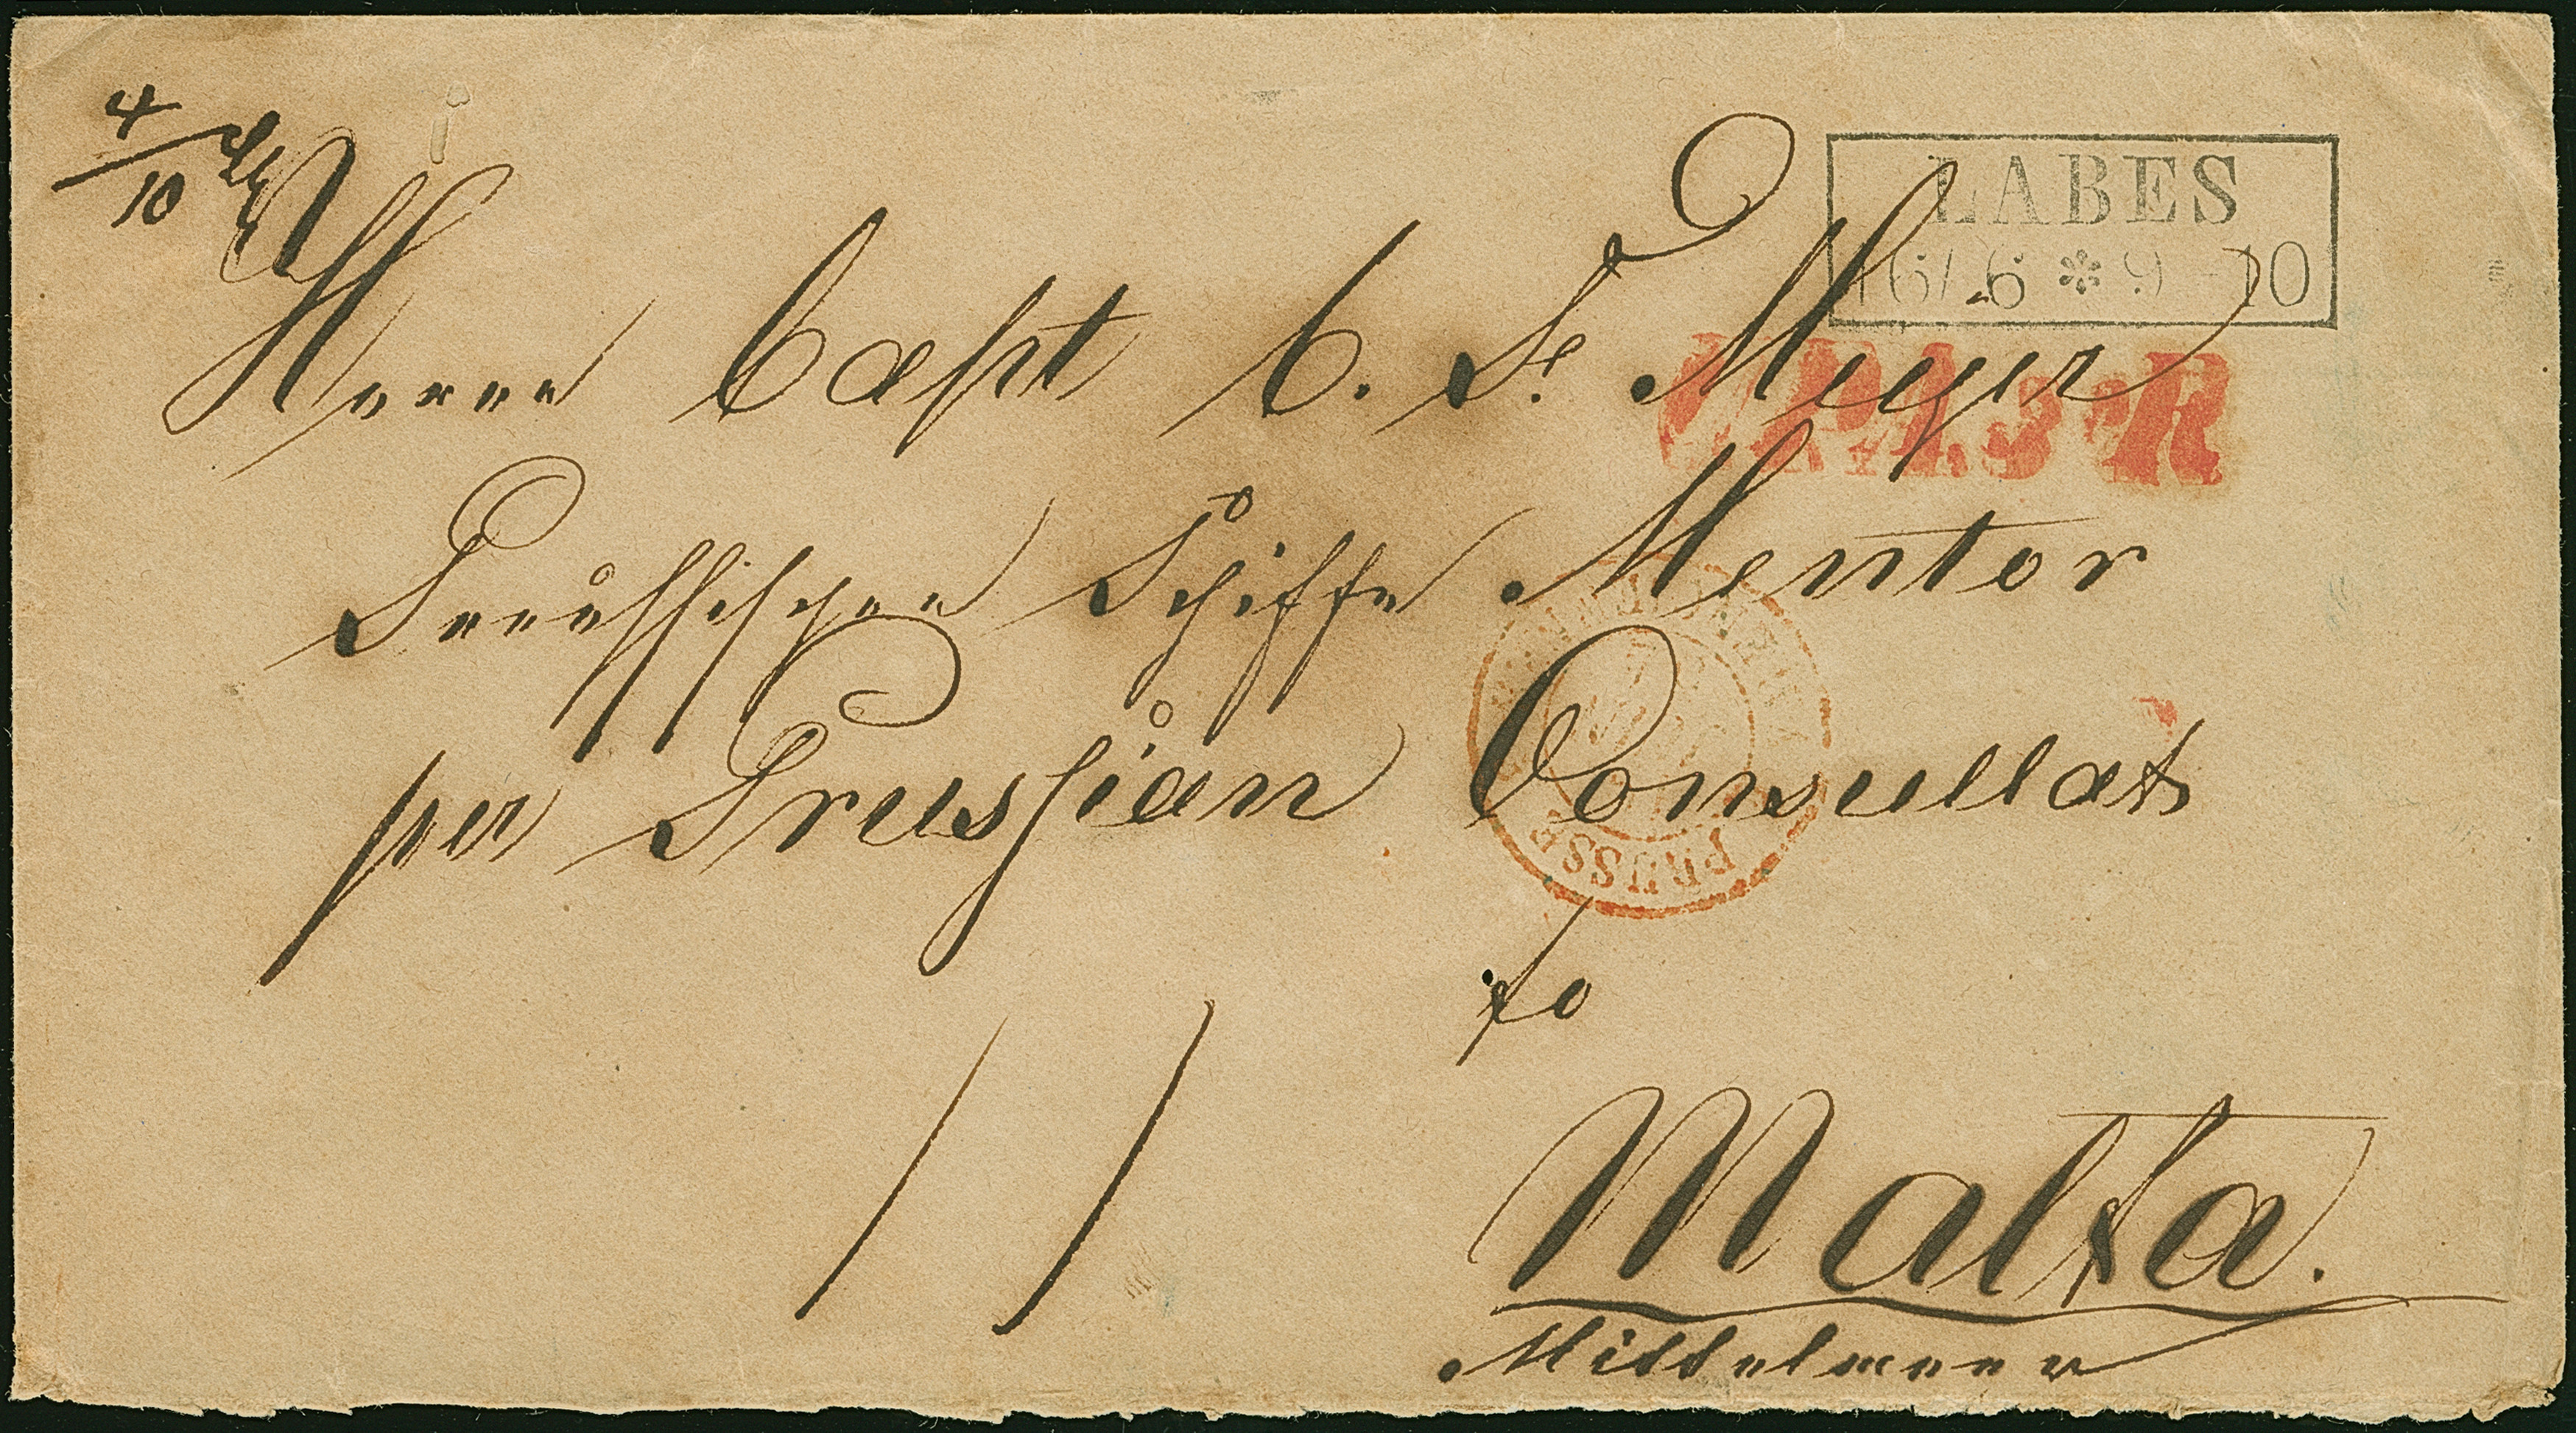 4/10
LABES
16/.6 * 9-10
Herrn Capt C. F. Meyer
Preußischen Schiffe Mentor
per Prussian Consullat
PRUSSE
to
Malta.
Mittelmeer